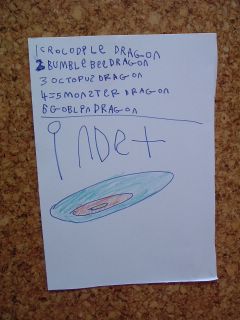 1CROCODPLE DRAGON
2BUMBLE BEEDRAGON
3 OCTOPUZDRAGON
4=5MONZTER DRAGON
6GOBLPNDRAGON
inDet